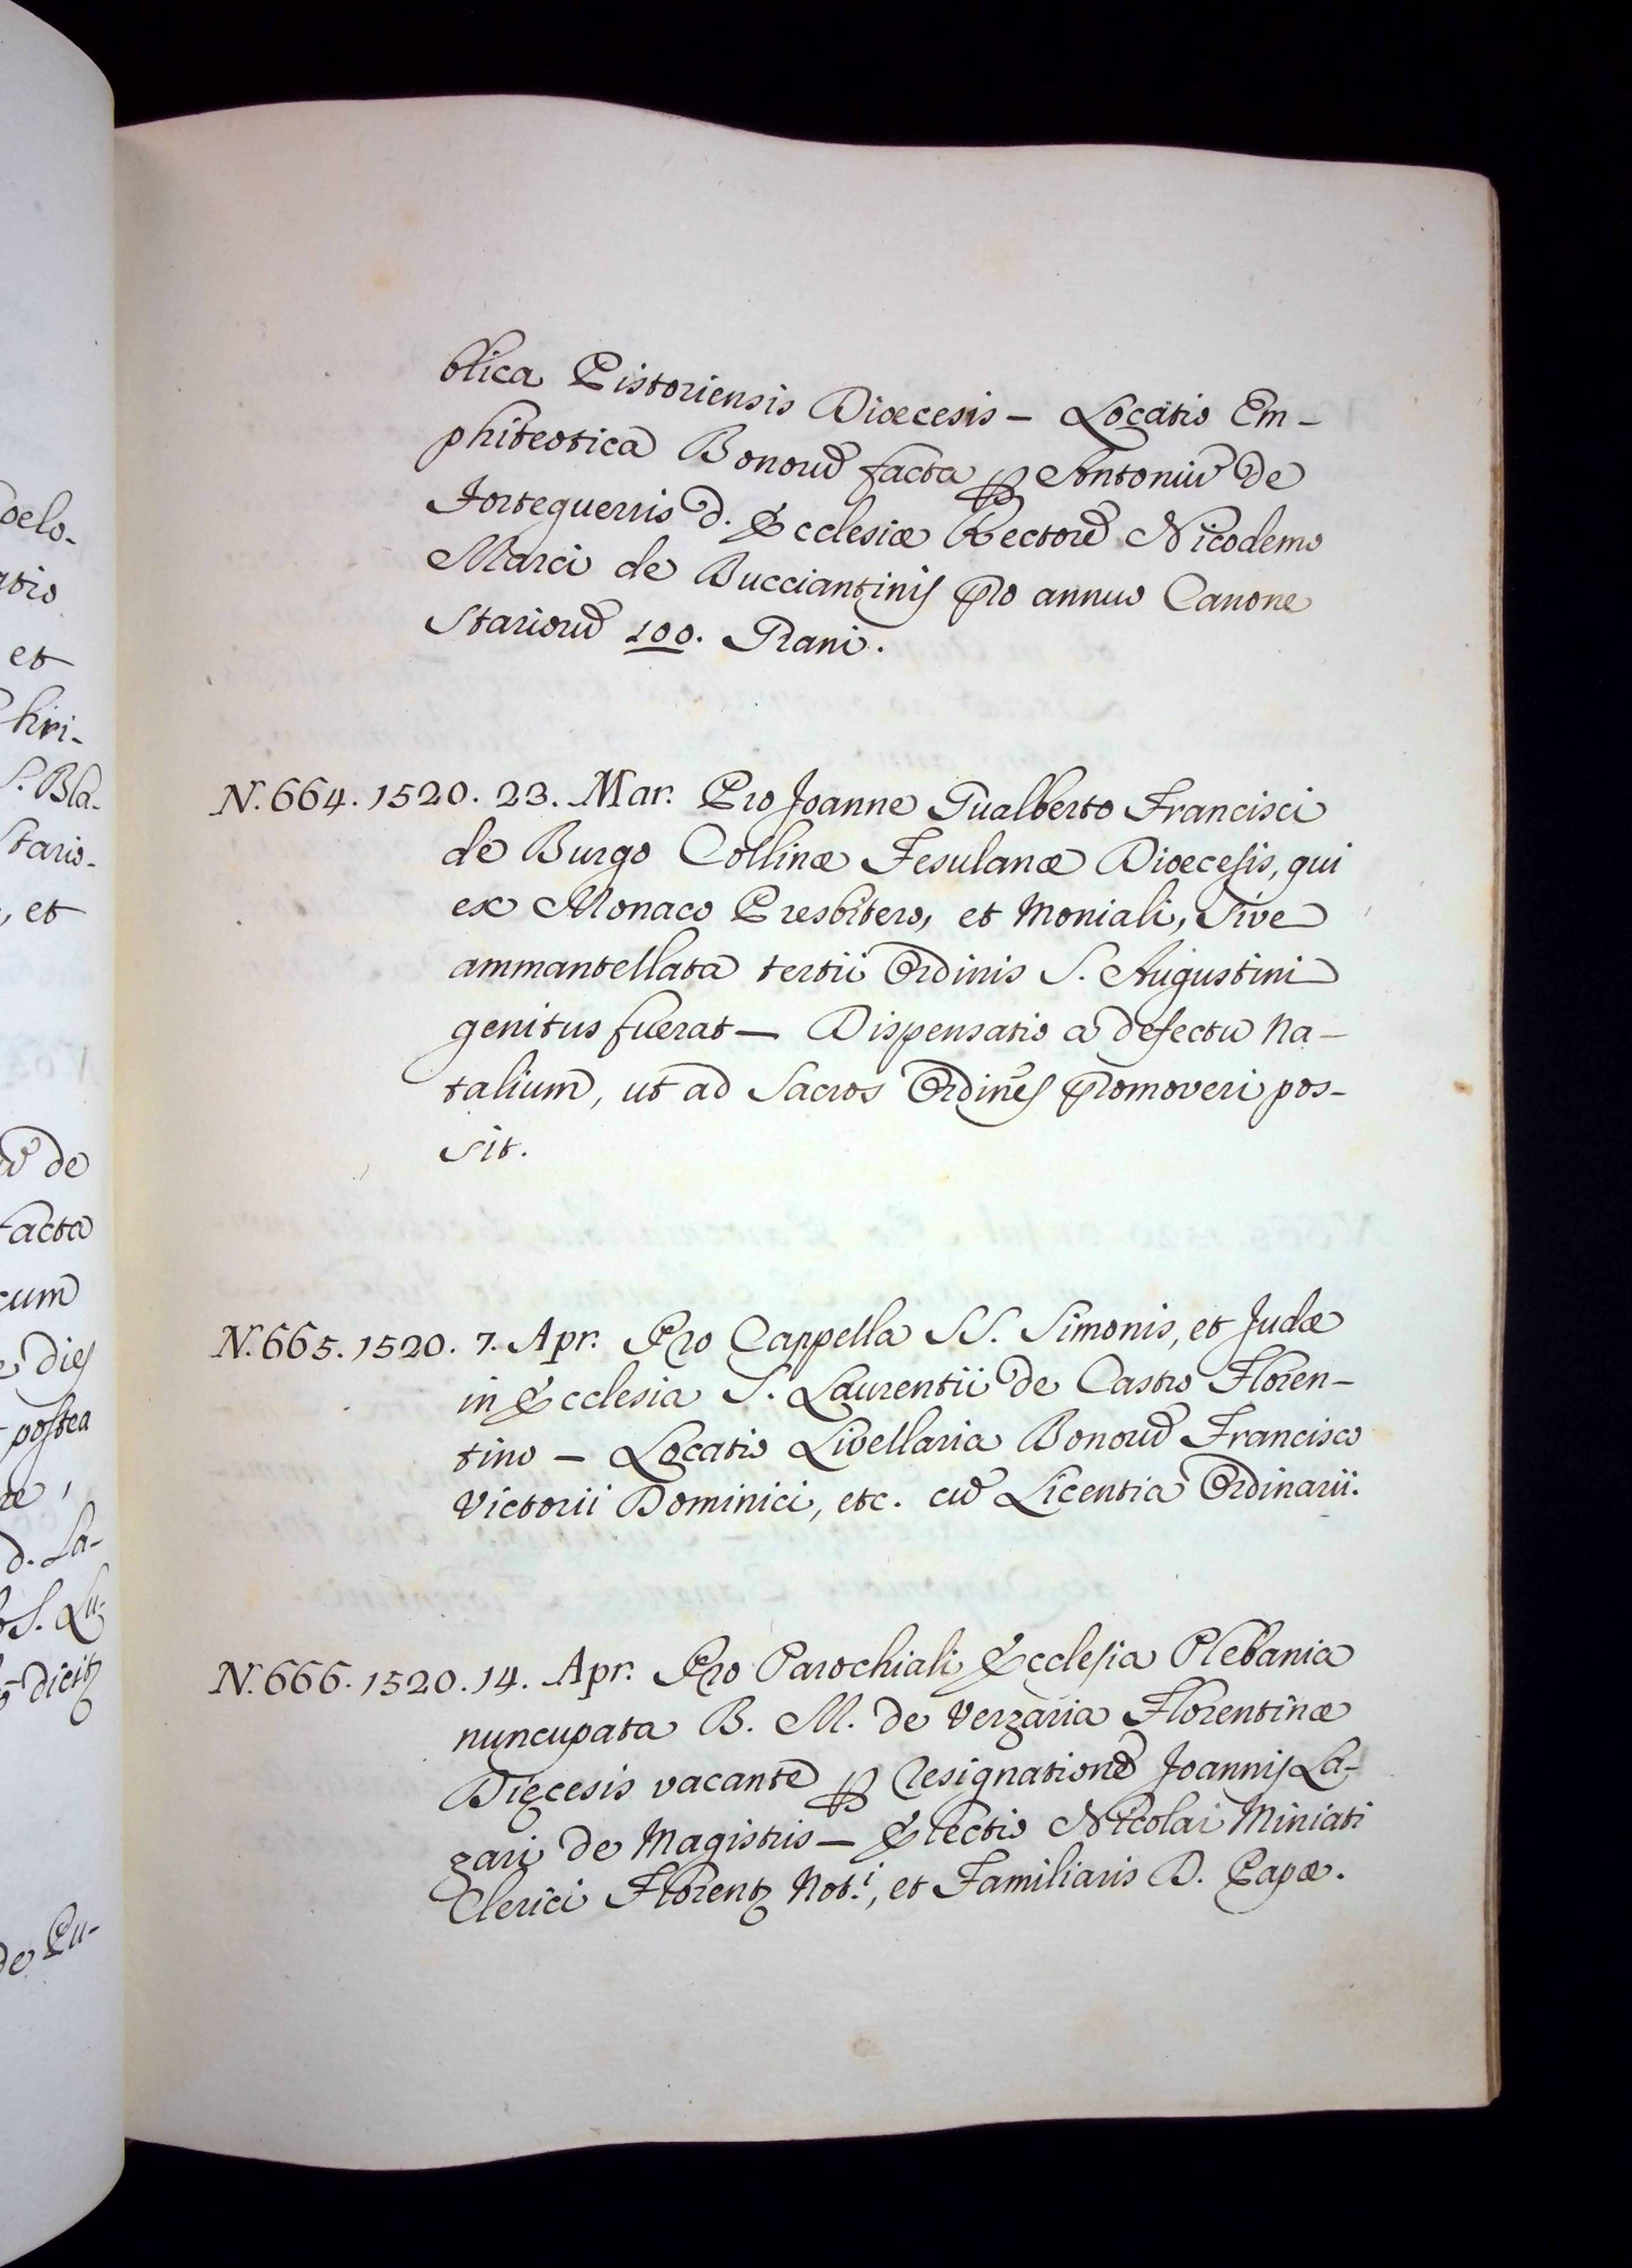 blica Pistoriensis Diœcesis — Locatio Em-
phiteotica Bonorũ facta ꝑ Antoniũ de
Forteguerris d. Ecclesiæ Rectorẽ Nicodemo
Marci de Bucciantinis pro annuo Canone
Stariorũ 100. Grani.
N. 664. 1520. 23. Mar. Pro Joanne Gualberto Francisci
de Burgo Collinæ Fesulanæ Diœcesis, qui
ex Monaco Presbitero, et Moniali, sive
ammantellata tertii Ordinis S. Augustini
genitus fuerat — Dispensatio a defectu na-
talium, ut ad Sacros Ordines promoveri pos-
sit.
N. 665. 1520. 7. Apr. Pro Cappella SS. Simonis, et Judæ
in Ecclesia S. Laurentii de Castro Floren-
tino — Locatio Livellaria Bonorũ Francisco
Victorii Dominici, etc. cũ Licentia Ordinarii.
N. 666. 1520. 14. Apr. Pro Parochiali Ecclesia Plebania
nuncupata B. M. de Verzaria Florentinæ
Dięcesis vacante ꝑ resignationẽ Joannis La-
zari de Magistris — Electio Nicolai Miniati
Clerici Florentꝫ Not.i, et Familiaris D. Papæ.
oelo-
atio
et
hri-
S. Bla-
Stario-
, et
ũ de
facta
cum
dies
postea
d. La-
S. Lu-
dicitꝫ
de Pu-